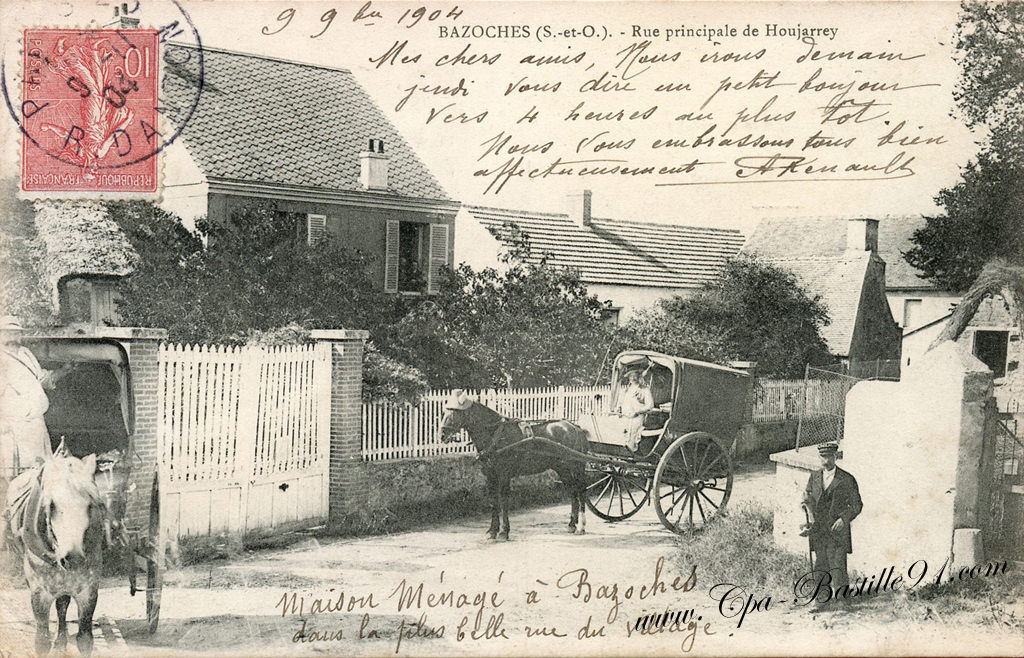 9 9bre 1904
BAZOCHES (S.-et-O.). - Rue principale de Houjarrey
Mes chers amis, Nous irons demain
jeudi vous dire un petit bonjour
vers 4 heures au plus tot.
Nous vous embrassons tous bien
affectueusement ARenault
10
POSTES
REPUBLIQUE FRANÇAISE
9
04
Maison Ménagé à Bazoches
dans la plus belle rue du village.
www.Cpa-Bastille91.com